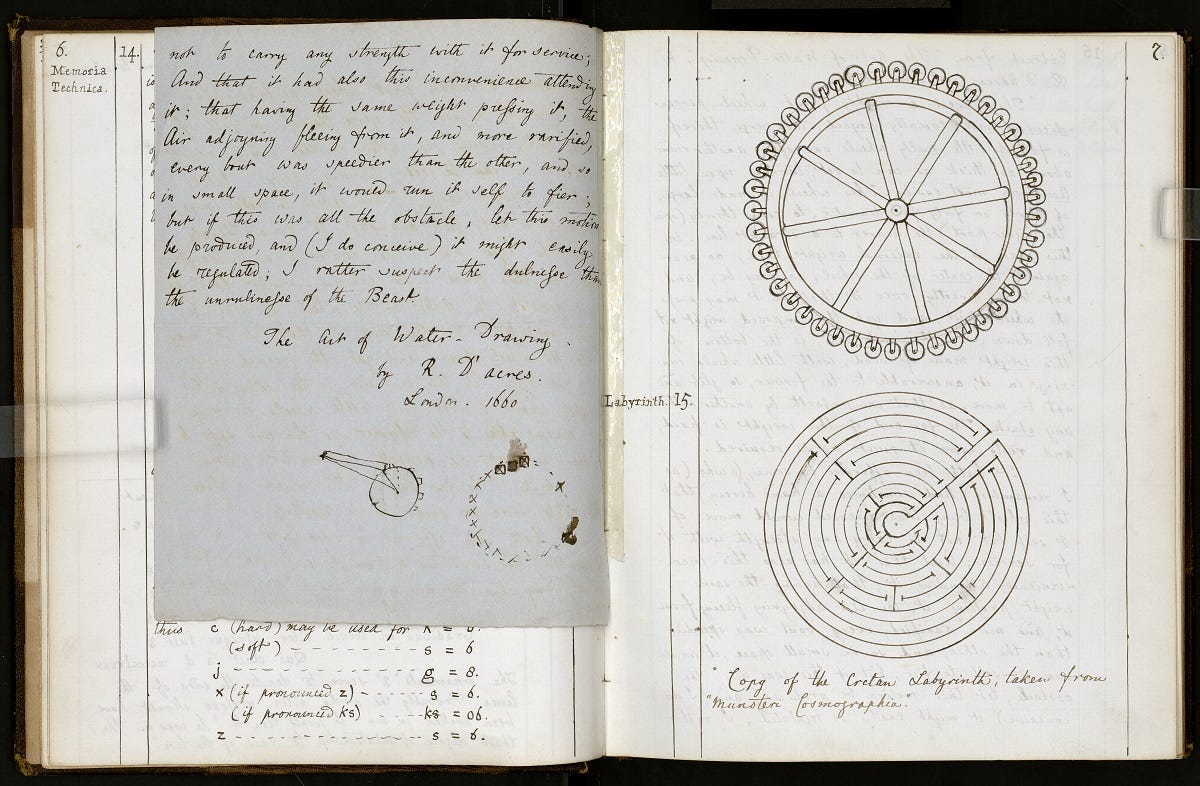 6.
Memoria
Technica.
14.
not to carry any strength with it for service;
And that it had also this inconvenience attending
it; that having the same weight pressing it, the
Air adjoyning fleeing from it, and more rarified,
every bout was speedier than the other, and so
in small space, it would run it self to fier;
but if this was all the obstacle, let this motion
be produced, and (I do conceive) it might easily
be regulated; I rather suspect the dulnesse than
the unrulinesse of the Beast.
The Art of Water-Drawing.
by R. D'acres.
London. 1660
thus c (hard) may be used for
(soft) - - - - - - - - - s = 6
j - - - - - - - - - - - - - g = 8.
x (if pronounced z) - - - - - s = 6.
(if pronounced ks) - - - - ks = 06.
z - - - - - - - - - - - - - s = 6.
7.
Labyrinth. 15.
Copy of the Cretan Labyrinth, taken from
"Munsteri Cosmographia."